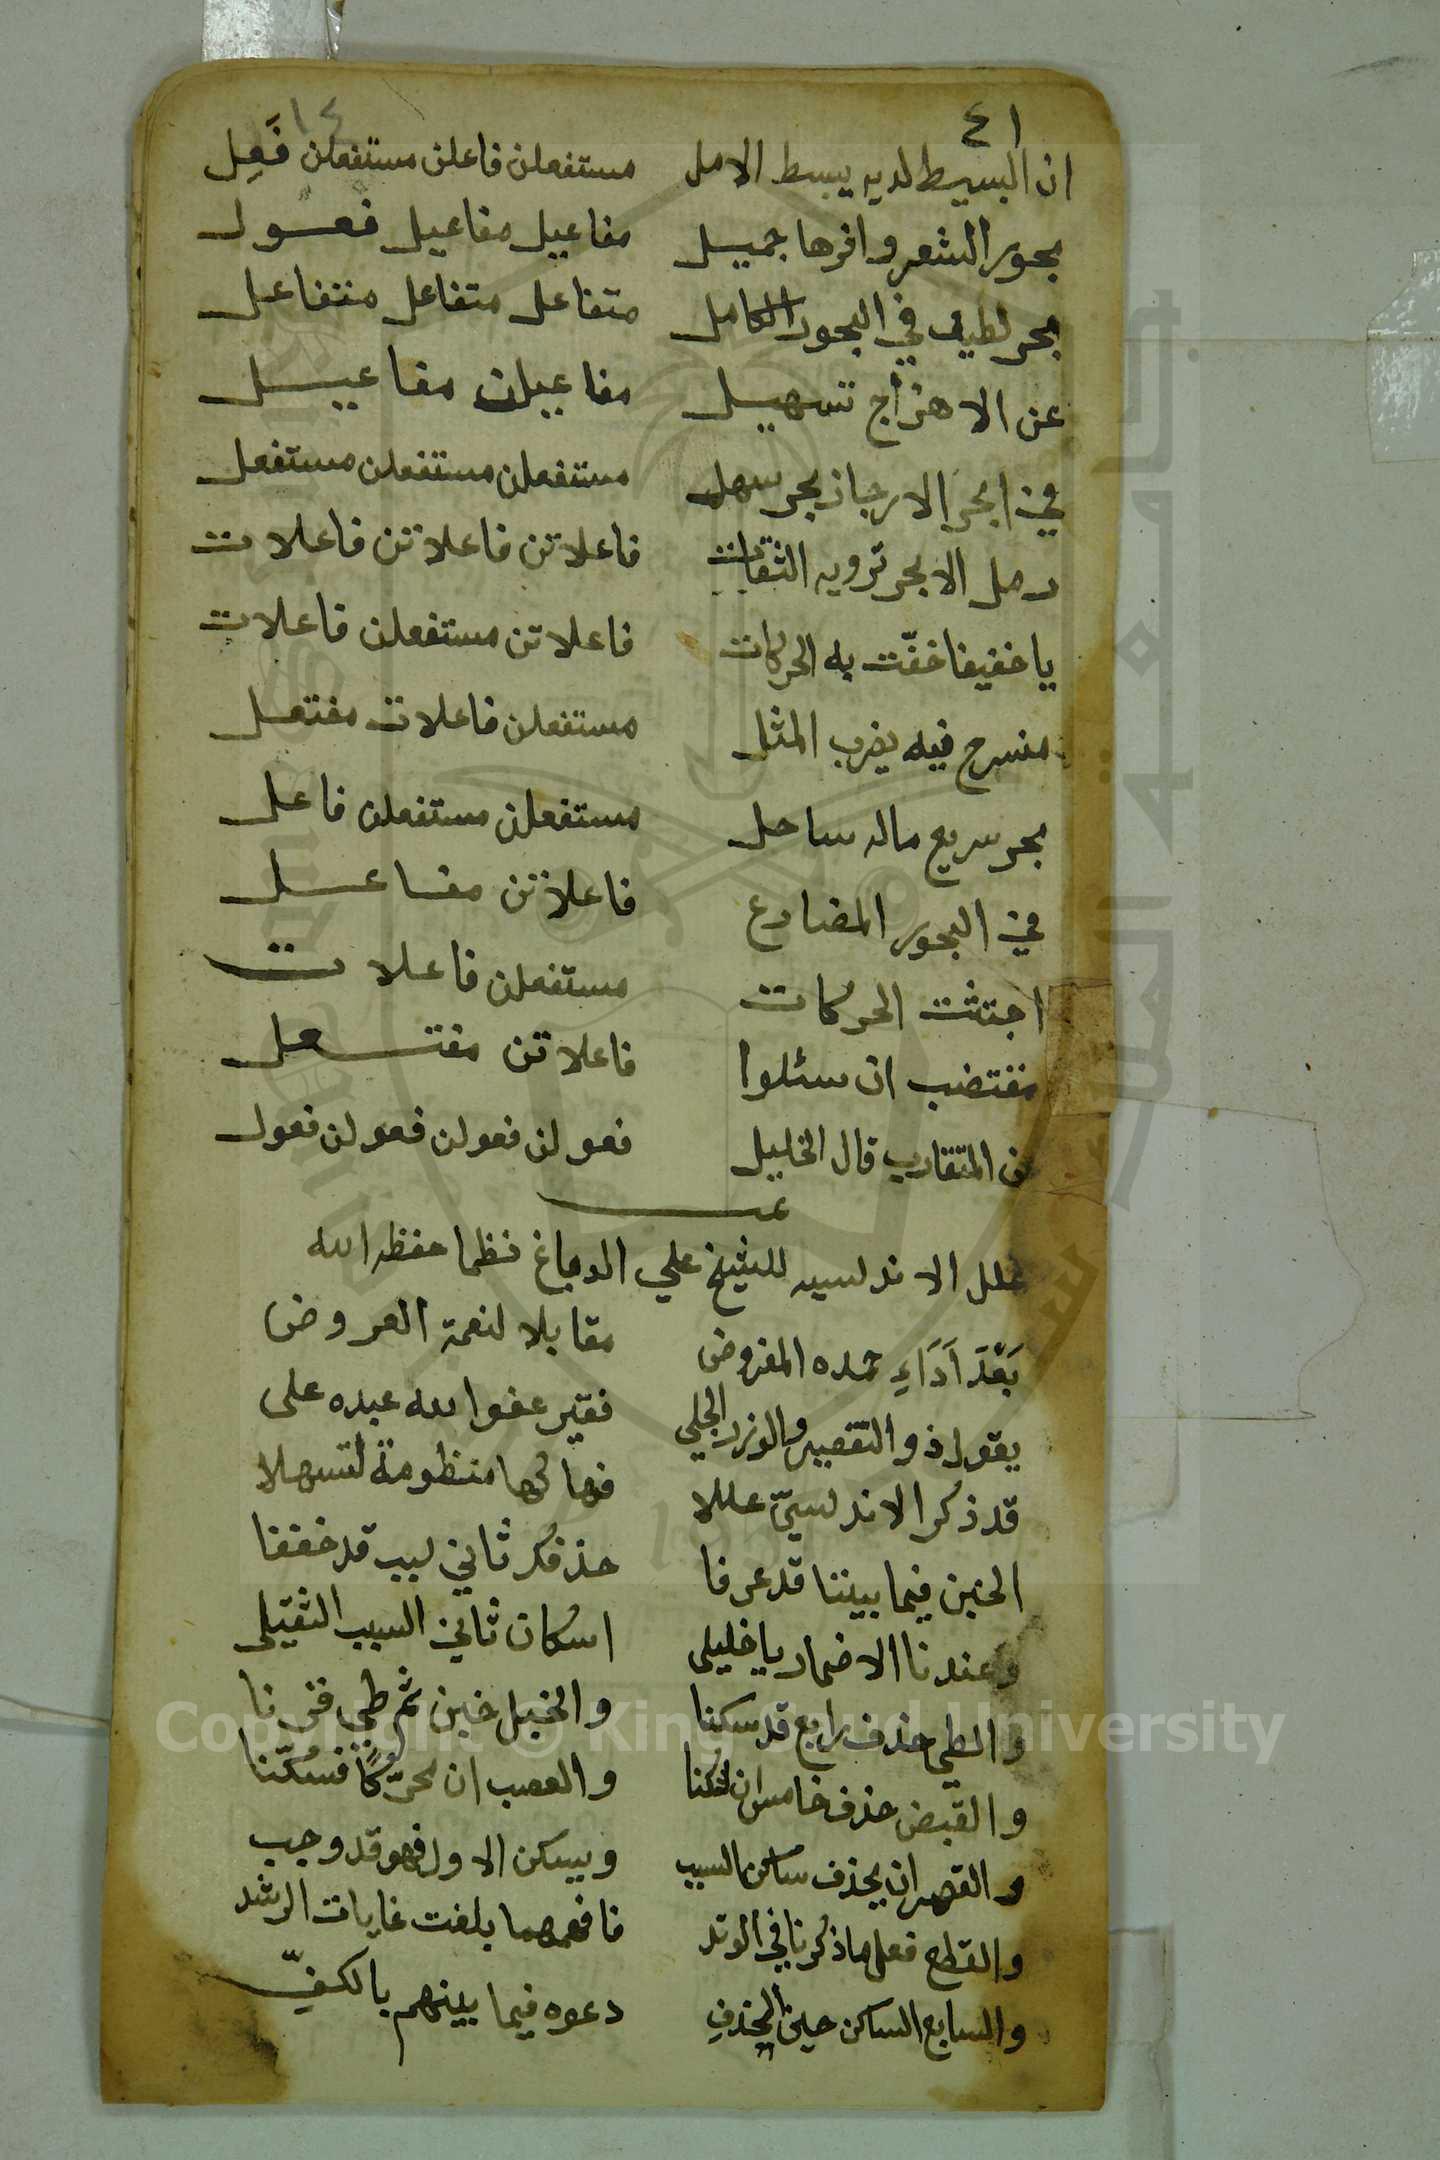 ٤١
١٤
ان البسيط لديه يبسط الامل مستفعلن فاعلن مستفعلن فَعِل
بحور الشعر وافرها جميل مفاعيل مفاعيل فعول
بحر لطيف في البحور الكامل متفاعل متفاعل متفاعل
عن الاهزاج تسهيل مفاعيلن مفاعيل
في ابحر الارجاز بحر سهل مستفعلن مستفعلن مستفعل
رمل الابحر ترويه الثقات فاعلاتن فاعلاتن فاعلات
يا خفيفا خفّت به الحركات فاعلاتن مستفعلن فاعلات
منسرح فيه يضرب المثل مستفعلن فاعلات مفتعل
بحر سريع ماله ساحل مستفعلن مستفعلن فاعل
في البحور المضارع فاعلاتن مفاعل
اجتثت الحركات مستفعلن فاعلات
مقتضب ان سئلوا فاعلاتن مفتعل
عن المتقارب قال الخليل فعولن فعولن فعولن فعول
علل الاندلسيه للشيخ علي الدباغ نظما حفظه الله
بَعْدَ اَدَاءِ حمده المفروض مقابلا لنعمة العروض
يقول ذو التقصير والوزر الجلي فقير عفو الله عبده على
قد ذكر الاندلسيّ عللا فهاكها منظومة لتسهلا
الخبن فيما بيننا قد عرفا حذفكر ثاني سبب قد خففا
وعندنا الاضمار يا خليلى اسكان ثاني السبب الثقيلى
والطي حذف رابع قد سكنا والخبل خبن ثم طي قرنا
والقبض حذف خامس ان سكنا والعصب ان محرّكًا فسُكّنا
والقصر ان يحذف ساكن السبب ويسكن الاول فهو قد وجب
والقطع فعل ما ذكرنا في الوتد فافهمهما بلغت غايات الرشد
والسابع الساكن حين يحذف دعوه فيما بينهم بالكفّ
Copyright © King Saud University